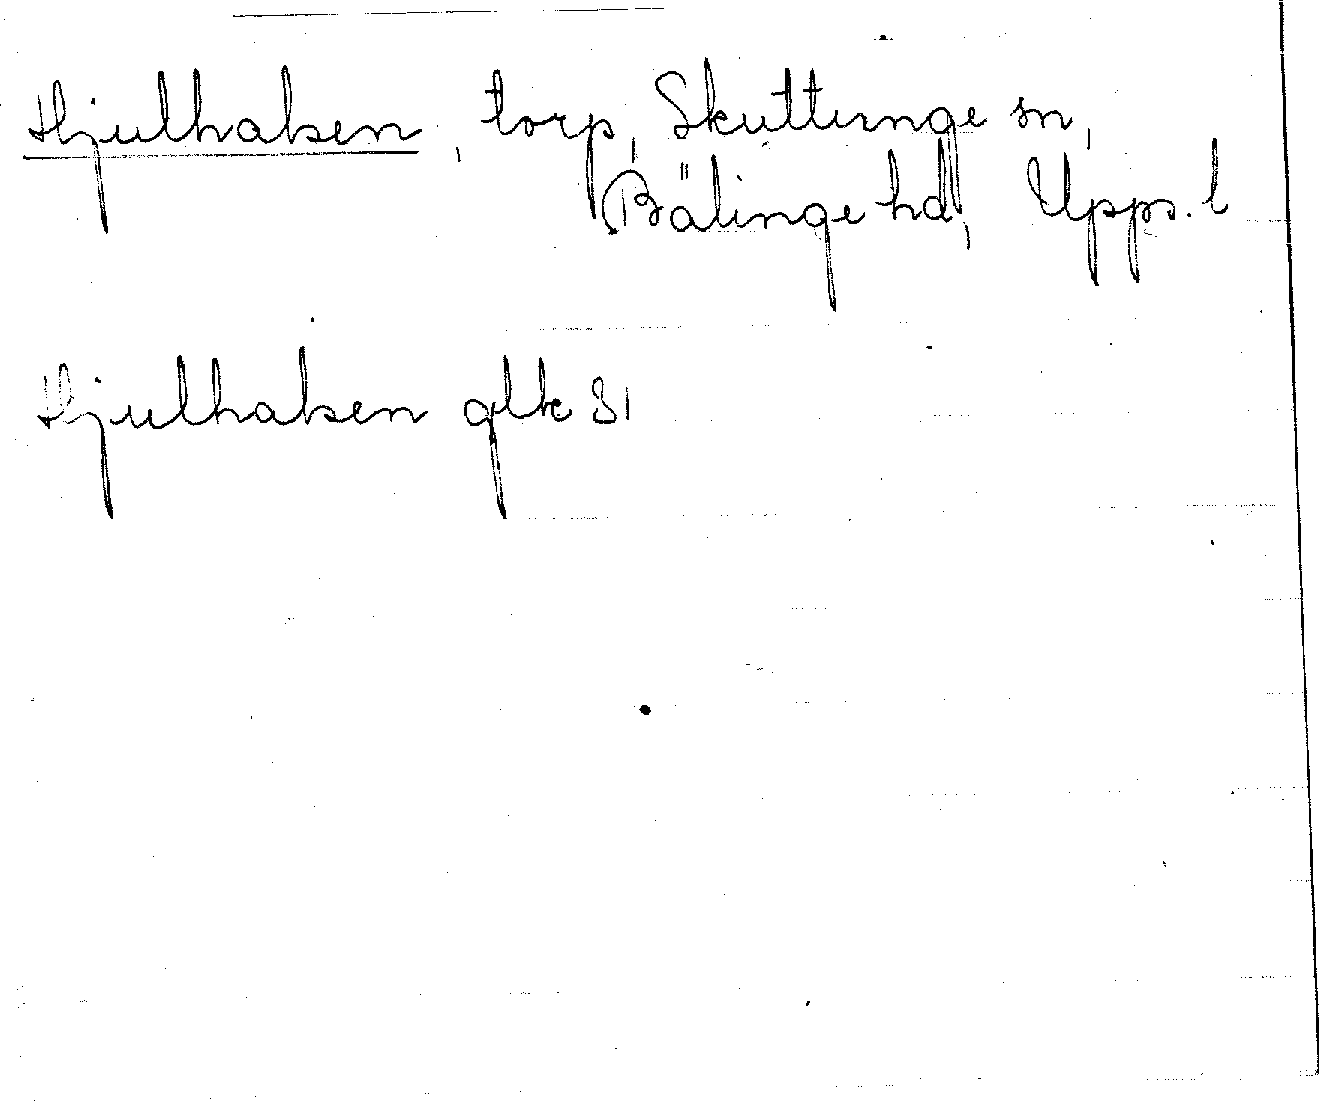 Hjulhaken, torp, Skuttunge sn,
Bälinge hd, Upps. l
Hjulhaken glk 81